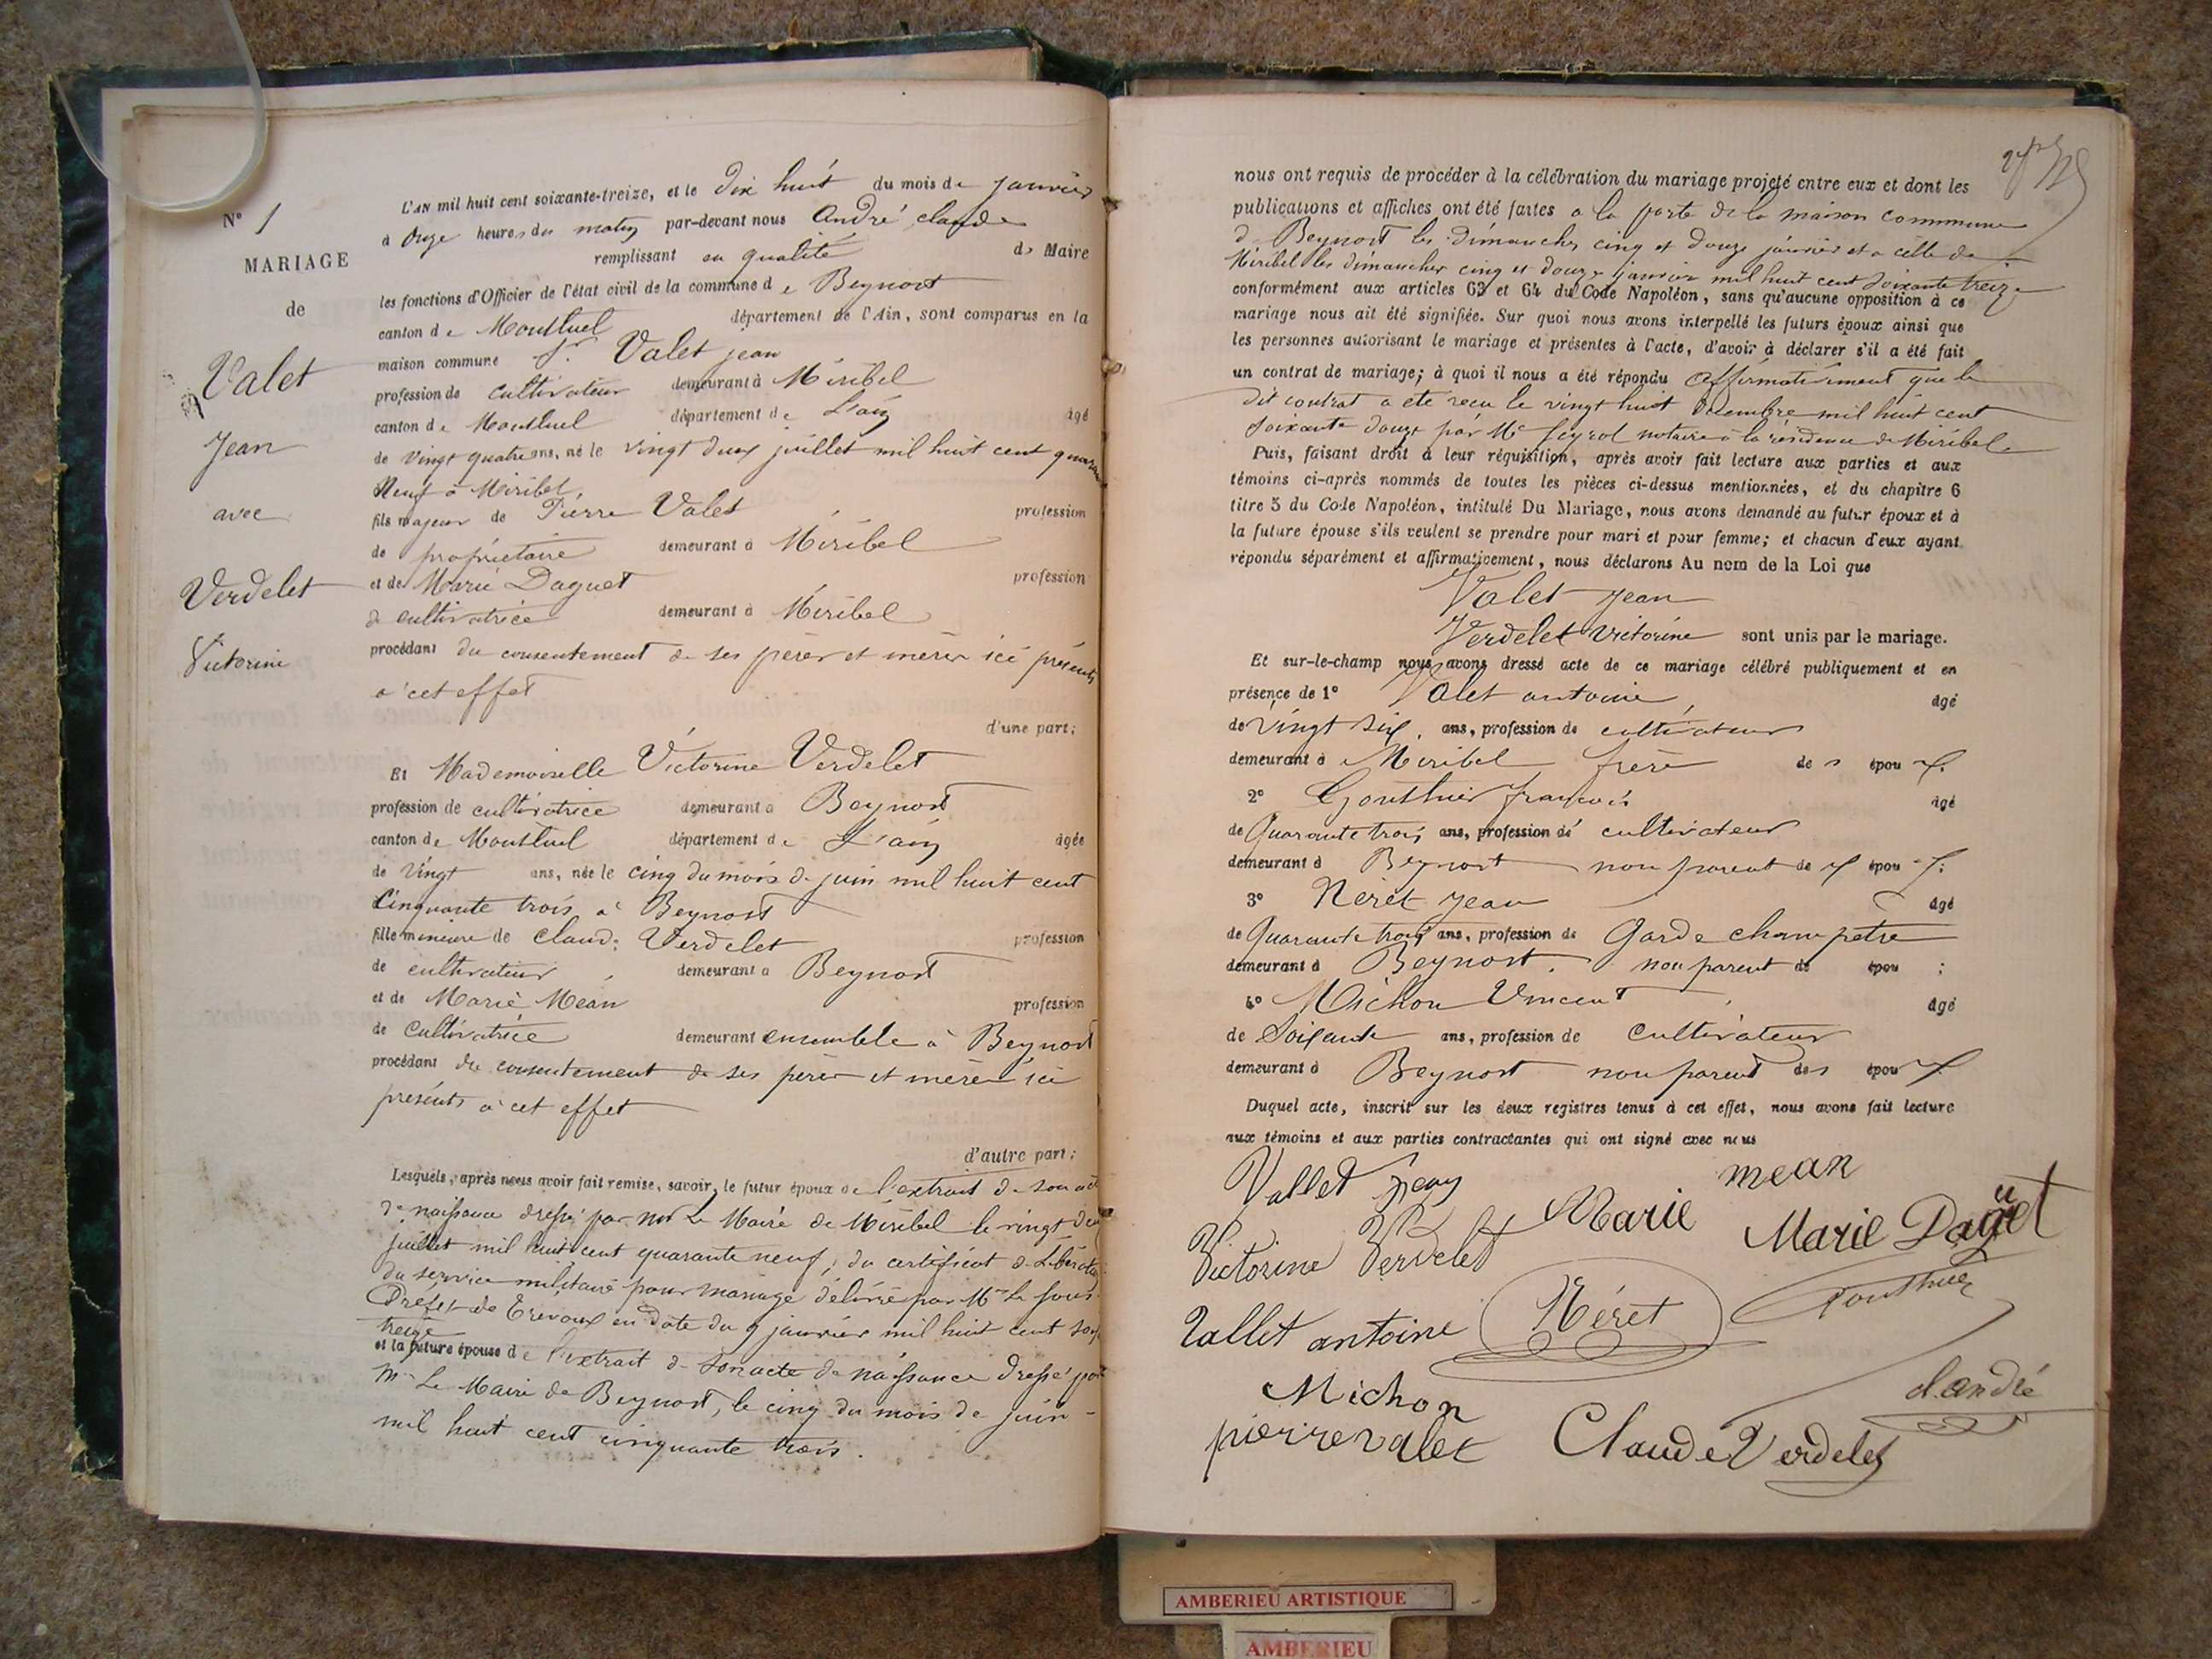 N° 1
MARIAGE
de
Valet
Jean
avec
Verdelet
Victorine
L'AN mil huit cent soixante-treize, et le dix huit du mois de janvier
à onze heures du matin par-devant nous André claude
remplissant en qualité de Maire
les fonctions d'Officier de l'état civil de la commune de Beynost
canton de Montluel département de l'Ain, sont comparus en la
maison commune Sr Valet jean
profession de cultivateur demeurant à Miribel
canton de Montluel département de L'ain âgé
de vingt quatre ans, né le vingt deux juillet mil huit cent quarante
Neuf à Miribel
fils majeur de Pierre Valet profession
de propriétaire demeurant à Miribel
et de Marie Daguet profession
de cultivatrice demeurant à Miribel
procédant du consentement de ses pères et mères ici présents
a cet effet
d'une part;
Et Mademoiselle Victorine Verdelet
profession de cultivatrice demeurant a Beynost
canton de Montluel département de L'ain âgée
de vingt ans, née le cinq du mois de juin mil huit cent
Cinquante trois à Beynost
fille mineure de claude Verdelet profession
de cultivateur demeurant a Beynost
et de Marie Mean profession
de cultivatrice demeurant ensemble à Beynost
procédant du consentement de ses pères et mères ici
présents à cet effet
d'autre part;
Lesquels, après nous avoir fait remise, savoir, le futur époux de l'extrait de son acte
de naissance dressé par Mr Le Maire de Miribel le vingt deux
juillet mil huit cent quarante neuf, du certificat de Libération
du service militaire pour mariage délivré par Mr Le sous
Préfet de Trevoux en date du 9 janvier mil huit cent soixante
treize
et la future épouse de l'extrait de son acte de naissance dressé par
Mr Le Maire de Beynost, le cinq du mois de juin
mil huit cent cinquante trois.
nous ont requis de procéder à la célébration du mariage projeté entre eux et dont les
publications et affiches ont été faites a la porte de la maison commune
de Beynost les dimanches cinq et douze janvier et a celle de
Miribel les dimanches cinq et douze janvier mil huit cent soixante treize
conformément aux articles 63 et 64 du Code Napoléon, sans qu'aucune opposition à ce
mariage nous ait été signifiée. Sur quoi nous avons interpellé les futurs époux ainsi que
les personnes autorisant le mariage et présentes à l'acte, d'avoir à déclarer s'il a été fait
un contrat de mariage; à quoi il nous a été répondu affirmativement que le
dit contrat a ete recu le vingt huit decembre mil huit cent
soixante douze par Me notaire à la résidence de Miribel
Puis, faisant droit à leur réquisition, après avoir fait lecture aux parties et aux
témoins ci-après nommés de toutes les pièces ci-dessus mentionnées, et du chapitre 6
titre 5 du Code Napoléon, intitulé Du Mariage, nous avons demandé au futur époux et à
la future épouse s'ils veulent se prendre pour mari et pour femme; et chacun d'eux ayant
répondu séparément et affirmativement, nous déclarons Au nom de la Loi que
Valet Jean
Verdelet Victorine sont unis par le mariage.
Et sur-le-champ nous avons dressé acte de ce mariage célébré publiquement et en
présence de 1° Valet antoine âgé
de vingt six ans, profession de cultivateur
demeurant à Miribel frère de s épou x.
2° Gonthier françois âgé
de Quarante trois ans, profession de cultivateur
demeurant à Beynost non parent de x épou x;
3° Néret Jean âgé
de Quarante trois ans, profession de Garde champetre
demeurant à Beynost, non parent de épou ;
4° Michon Vincent âgé
de Soixante ans, profession de Cultivateur
demeurant à Beynost non parent des épou x
Duquel acte, inscrit sur les deux registres tenus à cet effet, nous avons fait lecture
aux témoins et aux parties contractantes qui ont signé avec nous
Vallet Jean
Marie mean
Victorine Verdelet
Marie Daguet
Vallet antoine
Néret
Gonthier
Michon
C. André
pierre valet
Claude Verdelet
AMBERIEU ARTISTIQUE
AMBERIEU